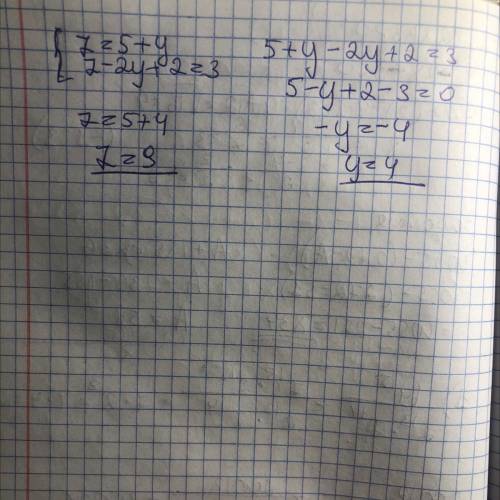 { z = 5 + y
z - 2y + 2 = 3
z = 5 + 4
z = 9
5 + y - 2y + 2 = 3
5 - y + 2 - 3 = 0
-y = -4
y = 4